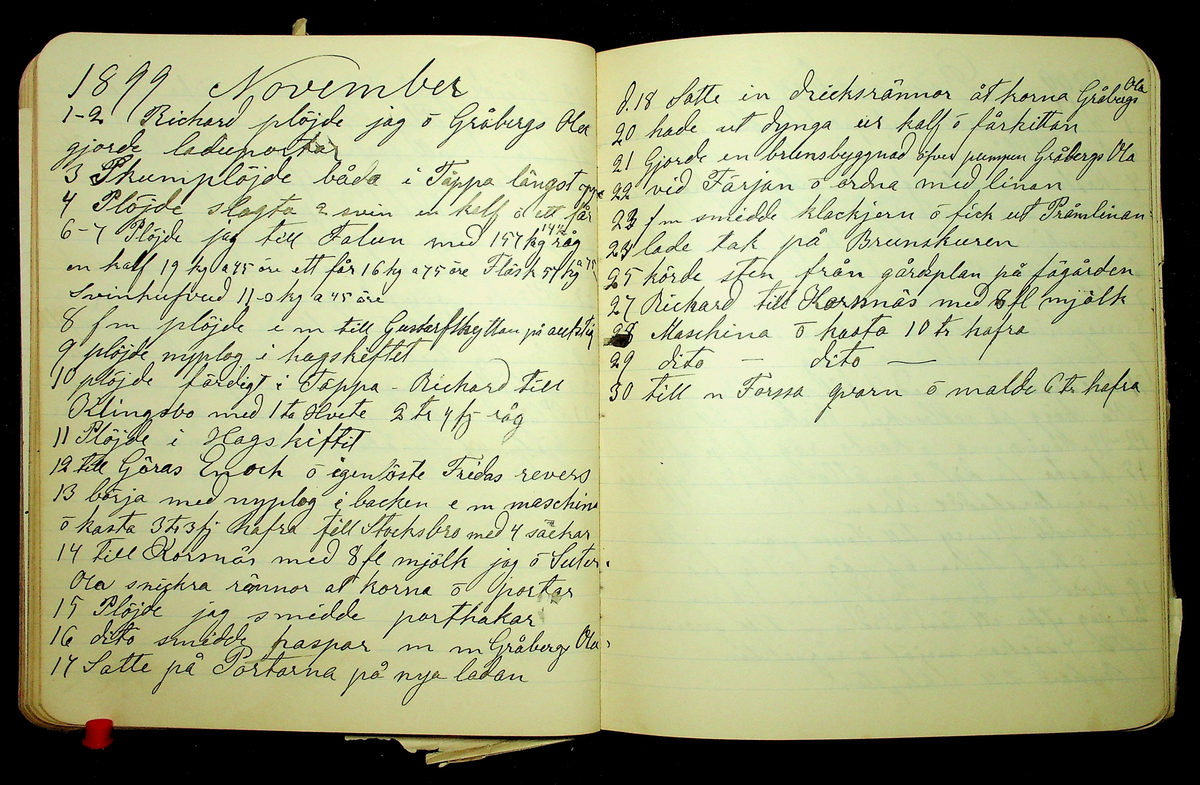 1899 November
1-2 Richard plöjde jag ö Gråbergs Ola
gjorde ladeportar
3 Skumplöjde båda i Täppa längst
4 Plöjde slagta 2 svin en kalf ö ett får
6-7 Plöjde jag till Falun med 157 kg råg
en kalf 19 kg a 45 öre ett får 16 kg a 75 öre Fläsk 57 kg a 75
Svinhufvud 11-0 kg a 45 öre
8 f m plöjde e m till Gustafshyttan på auktio
9 plöjde nyplog i hagskiftet
10 plöjde färdigt i Täppa - Richard till
Klingsbo med 1 ta Hvete 2 tr 4 fj råg
11 Plöjde i Hagskiftit
12 till Göras Enock ö igenlöste Fridas revers
13 börja med nyplog i backen e m maschina
ö kasta 3 tr 3 fj hafra till Stocksbro med 4 säckar
14 till Korsnäs med 8 fl mjölk jag ö Suter
Ola snickra rännor åt korna ö portar
15 Plöjde jag smidde porthakar
16 dito smidde haspar m m Gråbergs Ola
17 Satte på Portarna på nya ladan
d. 18 Satte in dricksrännor åt korna Gråbergs Ola
20 hade ut dynga ur kalf ö fårkittan
21 Gjorde en brunsbyggnad öfver pumpen Gråbergs Ola
22 vid Färjan ö ordna med linan
23 f m smidde klackjern ö fick ut Pråmlinan
24 lade tak på Brunskuren
25 körde sten från gårdsplan på fägården
27 Richard till Korsnäs med 8 fl mjölk
28 Maschina ö kasta 10 tr hafra
29 dito — dito —
30 till n Forssa qvarn ö malde 6 tr hafra